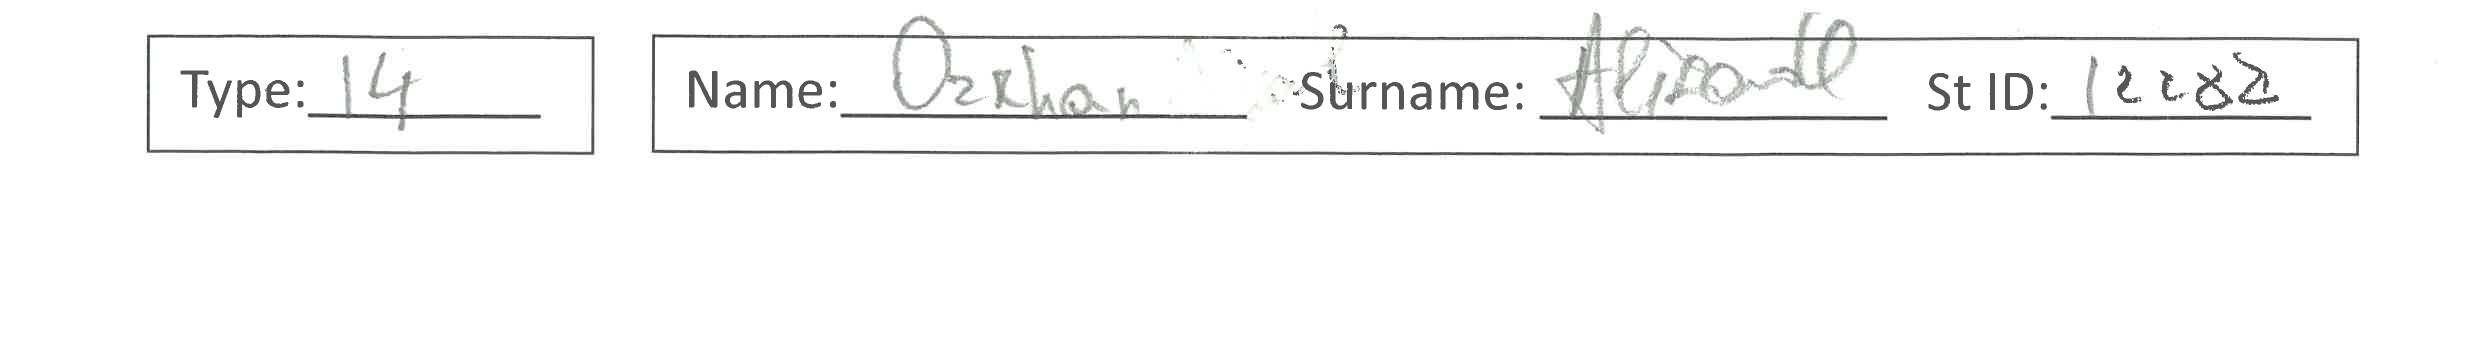 Type: 14 Name: Orkhan Surname: Alizade St ID: 12282